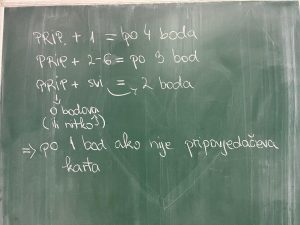 PRIP. + 1 = po 4 boda
PRIP + 2-6 = po 3 bod
PRIP + svi = 2 boda
↓
0 bodova
(ili nitko)
⇒ po 1 bod ako nije pripovjedačeva
karta